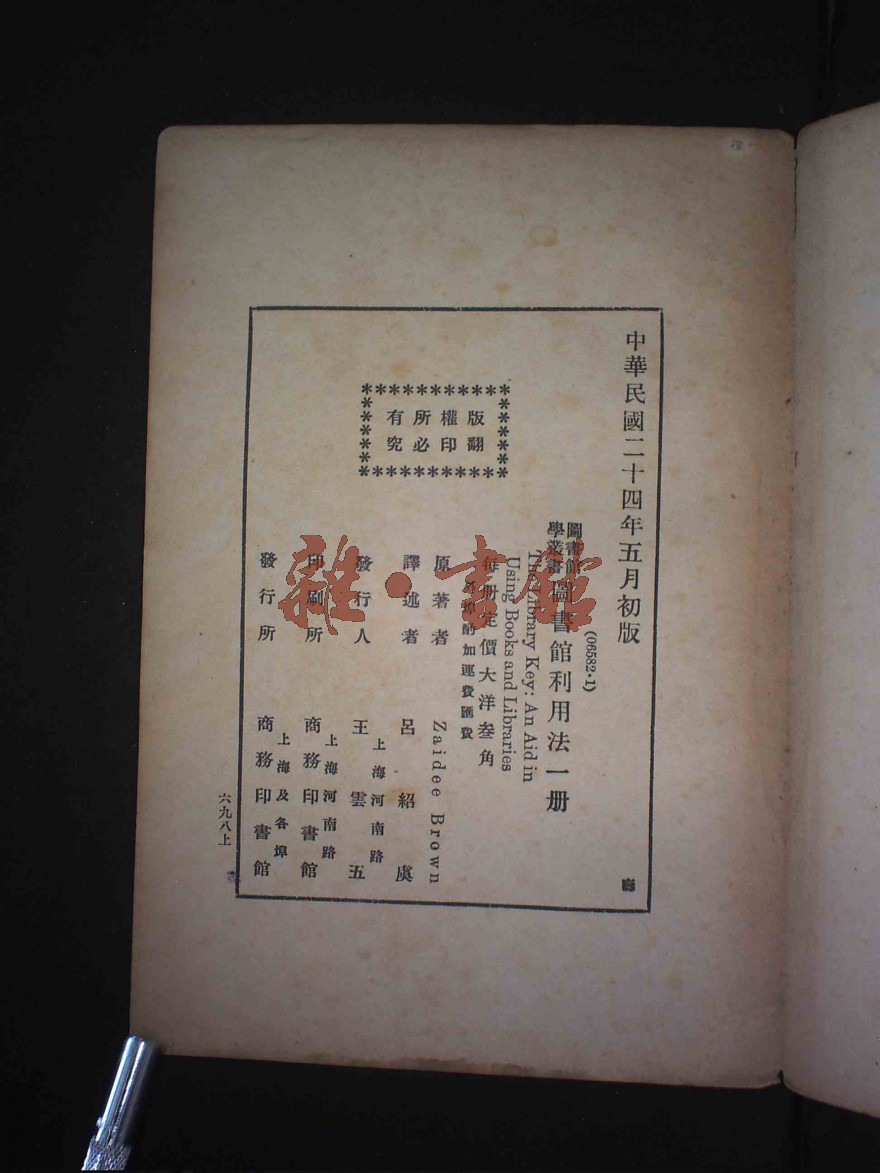 中華民國二十四年五月初版
(06582·1)
圖書館學叢書 圖書館利用法一册
The Library Key: An Aid in
Using Books and Libraries
每册定價大洋叁角
外埠酌加運費匯費
版權所有
翻印必究
原著者 Zaidee Brown
譯述者 呂紹虞
發行人 王雲五
上海河南路
印刷所 商務印書館
上海河南路
發行所 商務印書館
上海及各埠
六九八上
雜·書館